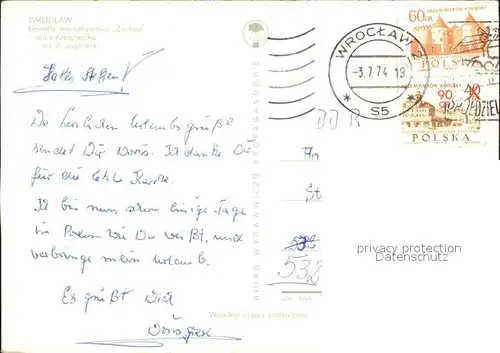 WROCŁAW
Osiedle mieszkaniowe "Zachód"
Hallo Steffen!
Die herzlichen Urlaubsgrüße
sendet Dir Doris. Ich danke Dir
für die letzte Karte.
Ich bin nun schon einige Tage
in Polen wie Du weißt, und
verbringe meinen Urlaub.
Es grüßt Dich
Doris
BIURO WYDAWNICZO PROPAGANDOWE
WROCŁAW
-3.7.74 19
S5
60 GR
POLSKA
90
40
POLSKA
DDR
An
St
532
532
privacy protection
Datenschutz
Wszelkie prawa zastrzeżone